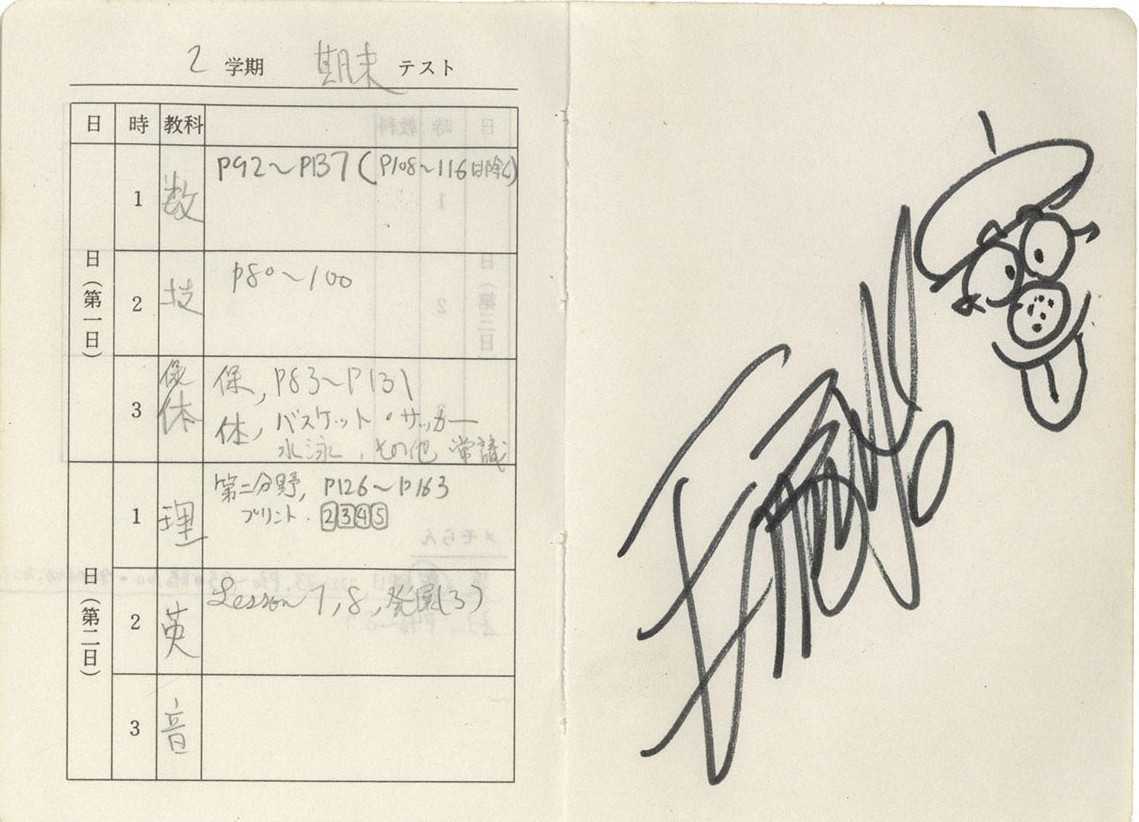 2 学期 期末 テスト
日 時 教科
日(第一日)
1 数 P92～P137(P108～116は除く)
2 技 P80～100
3 保体 保, P83～P131
体, バスケット・サッカー
水泳, その他 常識
日(第二日)
1 理 第二分野, P126～P163
プリント. 2 3 4 5
2 英 Lesson 7, 8, 発展(3)
3 音